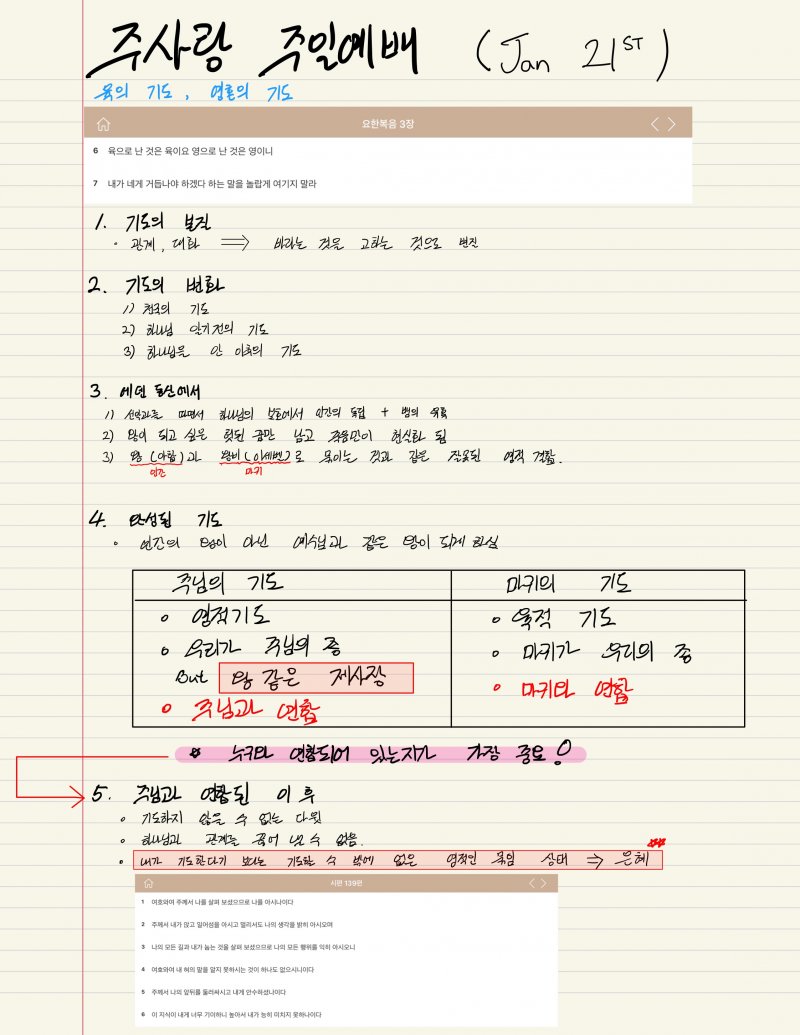 주사랑 주일예배 (Jan 21ST)
육의 기도, 영혼의 기도
요한복음 3장
6 육으로 난 것은 육이요 영으로 난 것은 영이니
7 내가 네게 거듭나야 하겠다 하는 말을 놀랍게 여기지 말라
1. 기도의 본질
• 관계, 대화 ⟹ 바라는 것을 고하는 것으로 변질
2. 기도의 변화
1) 천국의 기도
2) 하나님 알기전의 기도
3) 하나님을 안 이후의 기도
3. 에덴 동산에서
1) 선악과를 따면서 하나님의 보호에서 인간의 독립 + 뱀의 유혹
2) 왕이 되고 싶은 헛된 꿈만 남고 죽음만이 현실화 됨
3) 왕(아합)과 왕비(이세벨)로 묶이는 것과 같은 잘못된 영적 결합.
인간 마귀
4. 완성된 기도
• 인간의 왕이 아닌 예수님과 같은 왕이 되게 하심
주님의 기도 마귀의 기도
• 영적기도 • 육적 기도
• 우리가 주님의 종 • 마귀가 우리의 종
But 왕 같은 제사장
• 주님과 연합 • 마귀와 연합
* 누구와 연합되어 있는지가 가장 중요!
5. 주님과 연합된 이후
• 기도하지 않을 수 없는 다윗
• 하나님과 관계를 끊어 낼 수 없음.
• 내가 기도한다기 보다는 기도할 수 밖에 없은 영적인 묶임 상태 ⇒ 은혜
시편 139편
1 여호와여 주께서 나를 살펴 보셨으므로 나를 아시나이다
2 주께서 내가 앉고 일어섬을 아시고 멀리서도 나의 생각을 밝히 아시오며
3 나의 모든 길과 내가 눕는 것을 살펴 보셨으므로 나의 모든 행위를 익히 아시오니
4 여호와여 내 혀의 말을 알지 못하시는 것이 하나도 없으시니이다
5 주께서 나의 앞뒤를 둘러싸시고 내게 안수하셨나이다
6 이 지식이 내게 너무 기이하니 높아서 내가 능히 미치지 못하나이다